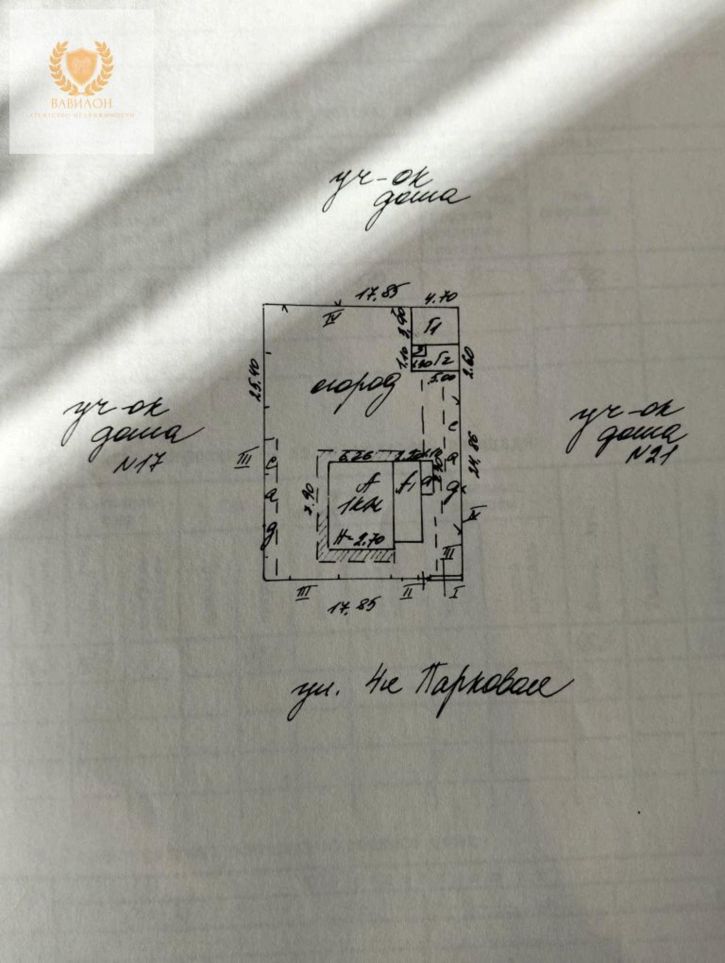 ВАВИЛОН
АГЕНТСТВО НЕДВИЖИМОСТИ
уч-ок
дома
17,85
4.70
IV
3,90
Г1
1.10
Г2
2.60
25.40
5,00
огород
уч-ок
дома
N17
уч-ок
дома
N21
III
сад
сад
24,86
5.26
А
1кж
А1
а
7.90
Н-2.70
III
II
III
I
17.85
ул. 4я Парковая